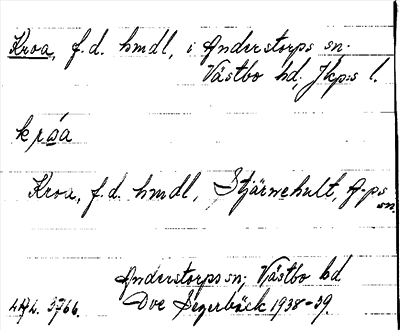 Kroa, f.d. hmdl, i Anderstorps sn.
Västbo hd, Jkp:s l.
kròa
Kroa, f.d. hmdl, Stjärnehult, A-ps sn.
Anderstorps sn; Västbo hd
Ove Segerbäck 1938-39.